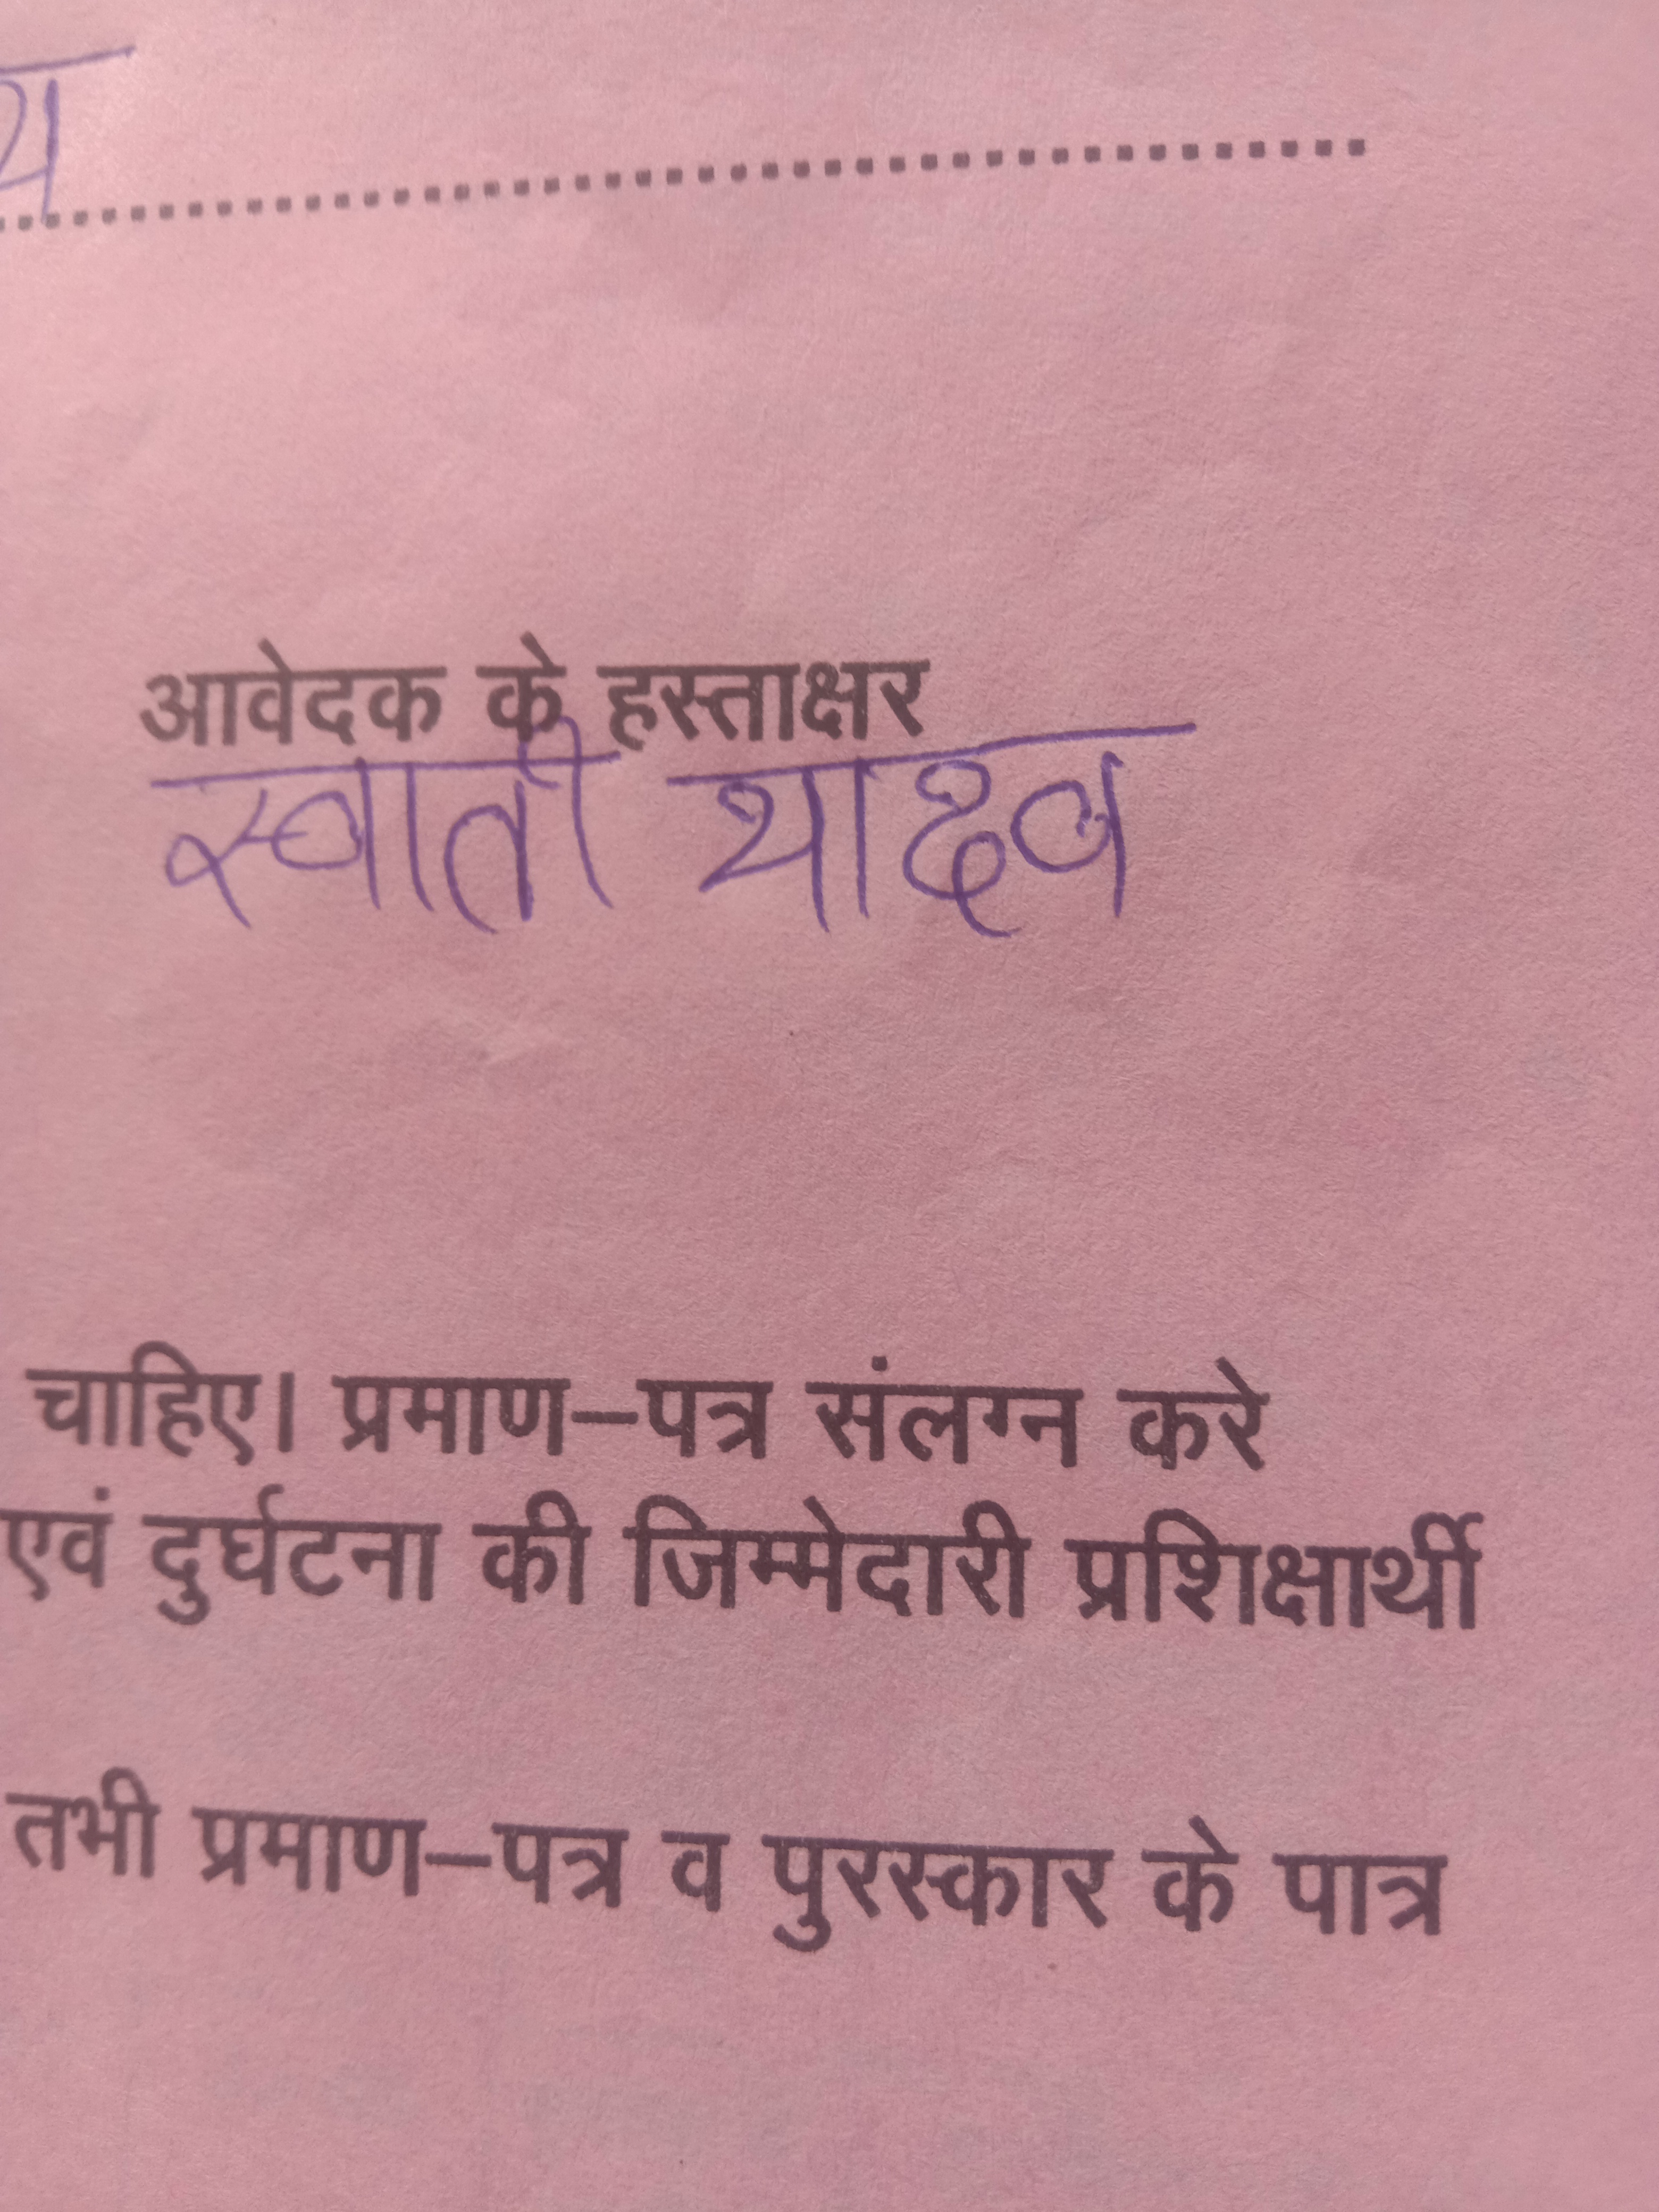 य
आवेदक के हस्ताक्षर
स्वाती यादव
चाहिए। प्रमाण–पत्र संलग्न करे
एवं दुर्घटना की जिम्मेदारी प्रशिक्षार्थी
तभी प्रमाण–पत्र व पुरस्कार के पात्र